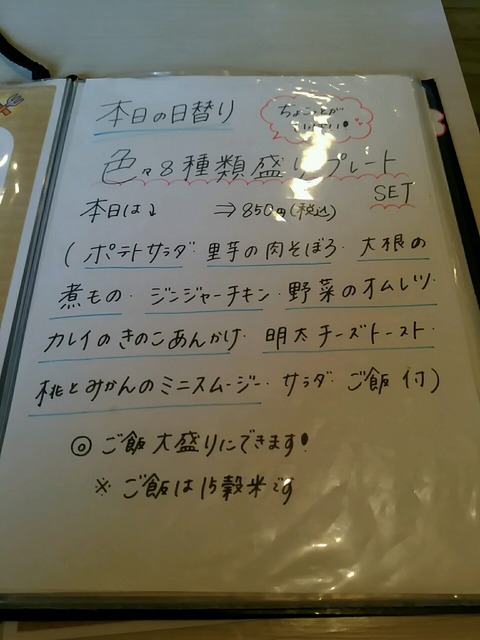 本日の日替り
ちょこっとが
いいでしょ!
色々8種類盛りプレート
SET
本日は↓ ⇒850円(税込)
(ポテトサラダ・里芋の肉そぼろ・大根の
煮もの・ジンジャーチキン・野菜のオムレツ・
カレイのきのこあんかけ・明太チーズトースト・
桃とみかんのミニスムージー・サラダ・ご飯付)
◎ご飯大盛りにできます!
※ご飯は15穀米です